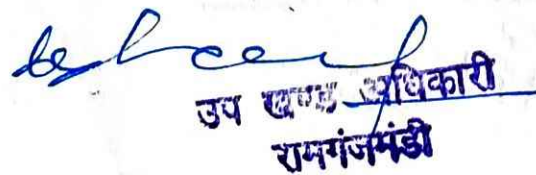 उप खण्ड अधिकारी
रामगंजमंडी